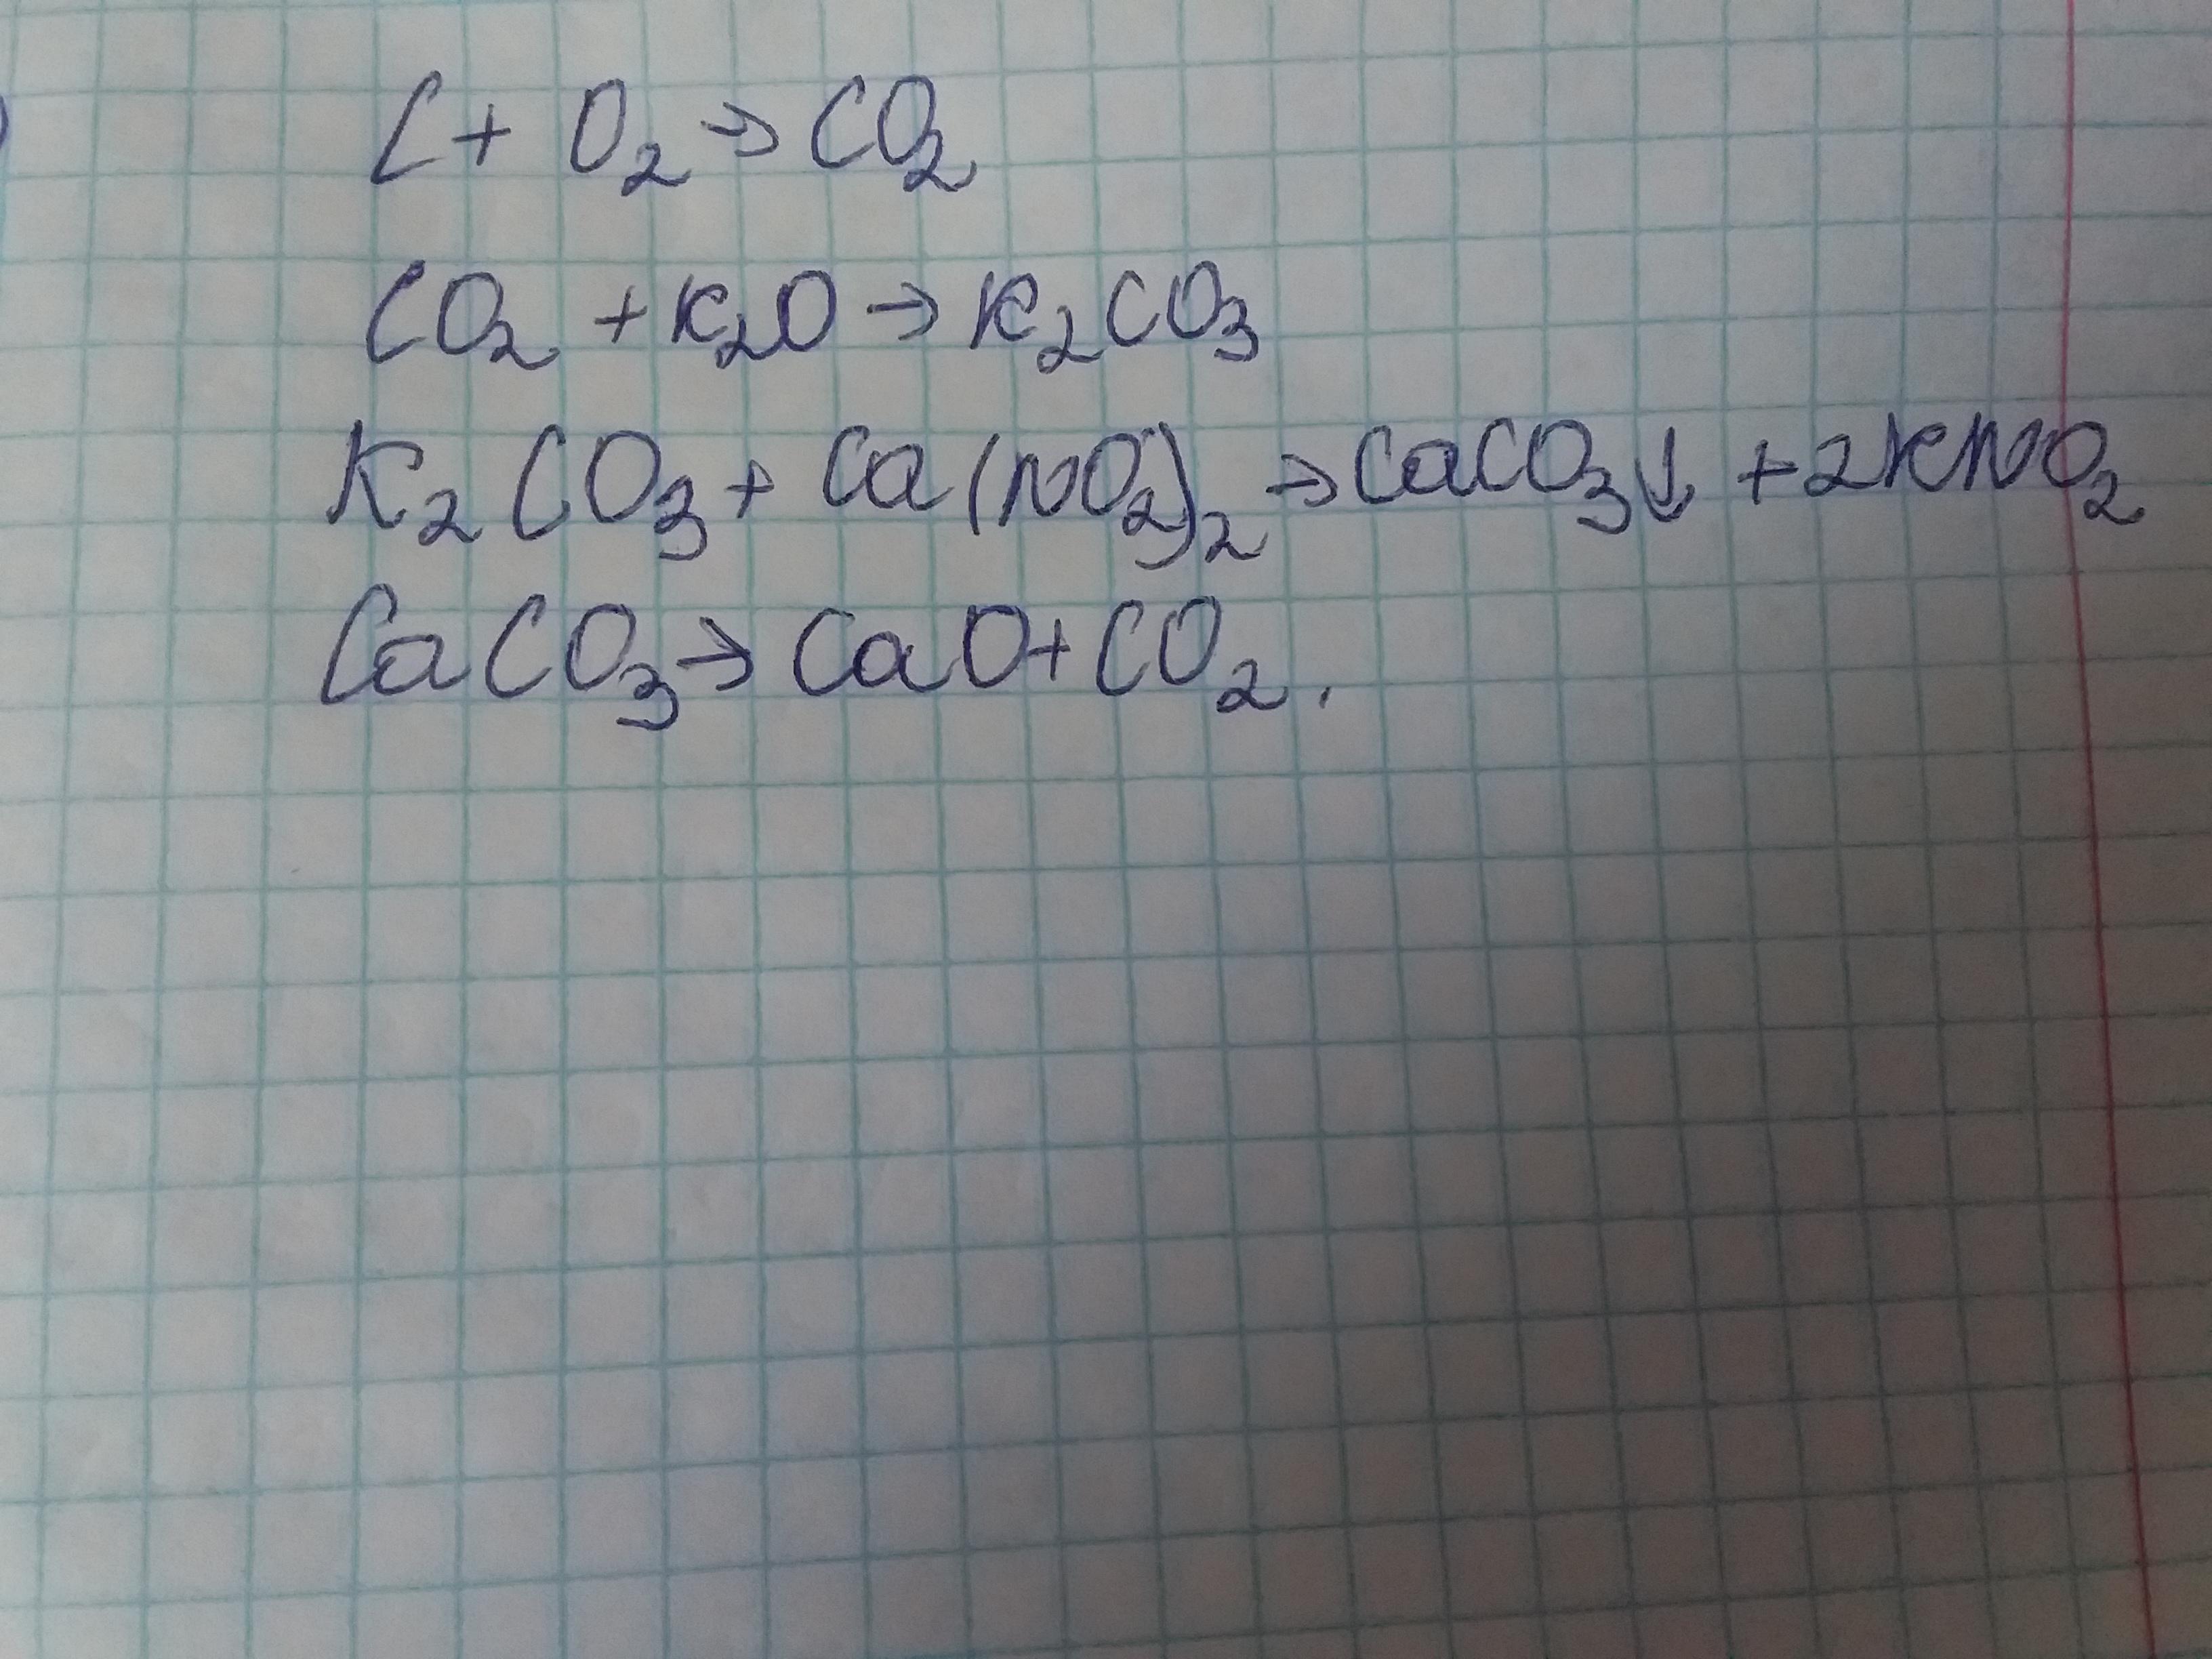 C + O₂ → CO₂
CO₂ + K₂O → K₂CO₃
K₂CO₃ + Ca(NO₂)₂ → CaCO₃↓ + 2KNO₂
CaCO₃ → CaO + CO₂.